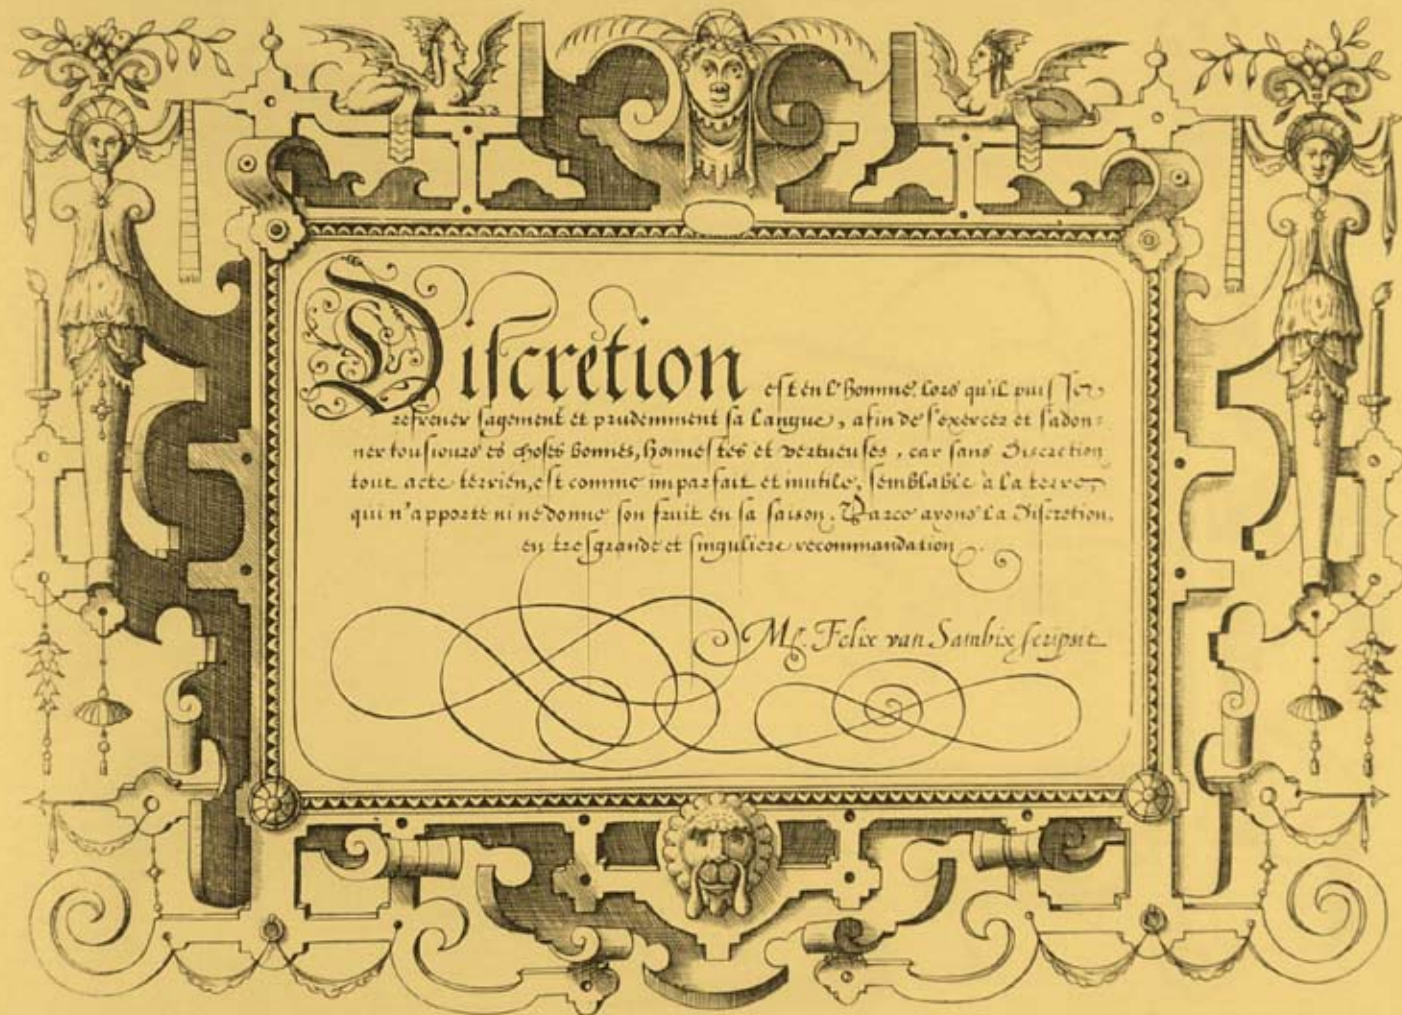 Discretion est en l'homme, lors qu'il puisse
refrener sagement et prudemment sa langue, afin de s'exercer et s'adon-
ner tousiours es choses bonnes, honnestes et vertueuses, car sans Discretion
tout acte terrien, est comme imparfait et inutile, semblable à la terre,
qui n'apporte ni ne donne son fruit en sa saison. Parce ayons la Discretion,
en tresgrande et singuliere recommandation.
Mr. Felix van Sambix scripsit